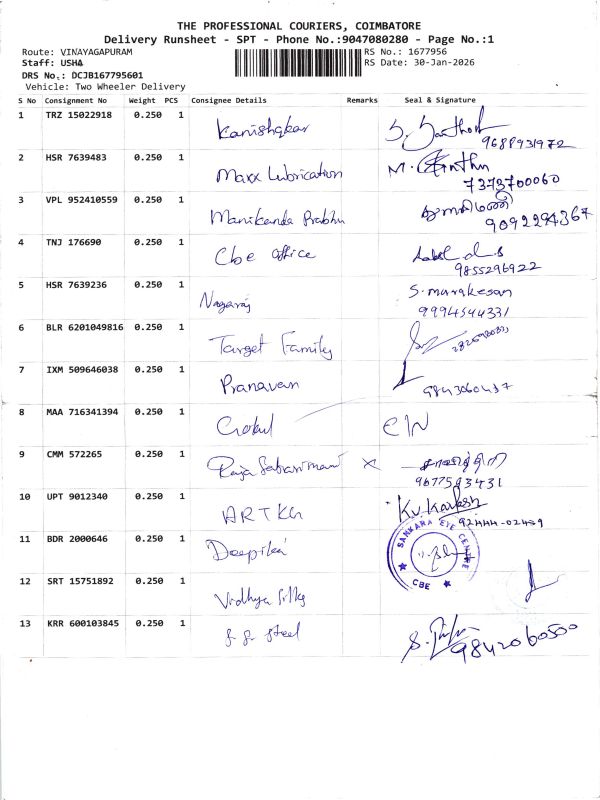 THE PROFESSIONAL COURIERS, COIMBATORE
Delivery Runsheet - SPT - Phone No.:9047080280 - Page No.:1
Route: VINAYAGAPURAM
RS No.: 1677956
Staff: USHA
RS Date: 30-Jan-2026
DRS No.: DCJB167795601
Vehicle: Two Wheeler Delivery
S No Consignment No Weight PCS Consignee Details Remarks Seal & Signature
1 TRZ 15022918 0.250 1 Kanishqkar
9688931972
2 HSR 7639483 0.250 1 Maxx Lubrication M.
7373700060
3 VPL 952410559 0.250 1 Manikanda Prabhu
9092294367
4 TNJ 176690 0.250 1 Cbe office
9855296922
5 HSR 7639236 0.250 1 Nagaraj S. murakesan
9994544331
6 BLR 6201049816 0.250 1 Target Family
7 IXM 509646038 0.250 1 Pranavan
8 MAA 716341394 0.250 1 Gokul
9 CMM 572265 0.250 1 Raja x
9677593431
10 UPT 9012340 0.250 1 ARTKG K.V. Karkesh
92444-02439
11 BDR 2000646 0.250 1 Deepika SANKARA EYE CENTRE
CBE
12 SRT 15751892 0.250 1 Vidhya Silks
13 KRR 600103845 0.250 1 S. S. Steel S.
9842060500